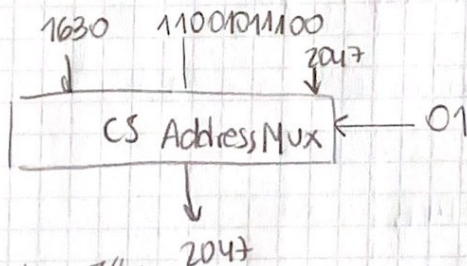 1630 11001011100
2047
CS Address Mux 01
2047